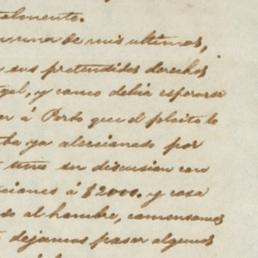 almente.
una de mis ultimas,
sus pretendidos derechos
gel, y como debia esperarse
á Porto que el pleito lo
ba ya aleccionado por
tuve su discusion con
ciones á $2000. y cosa
so al hombre, comenzamos
dejamos pasar algunos